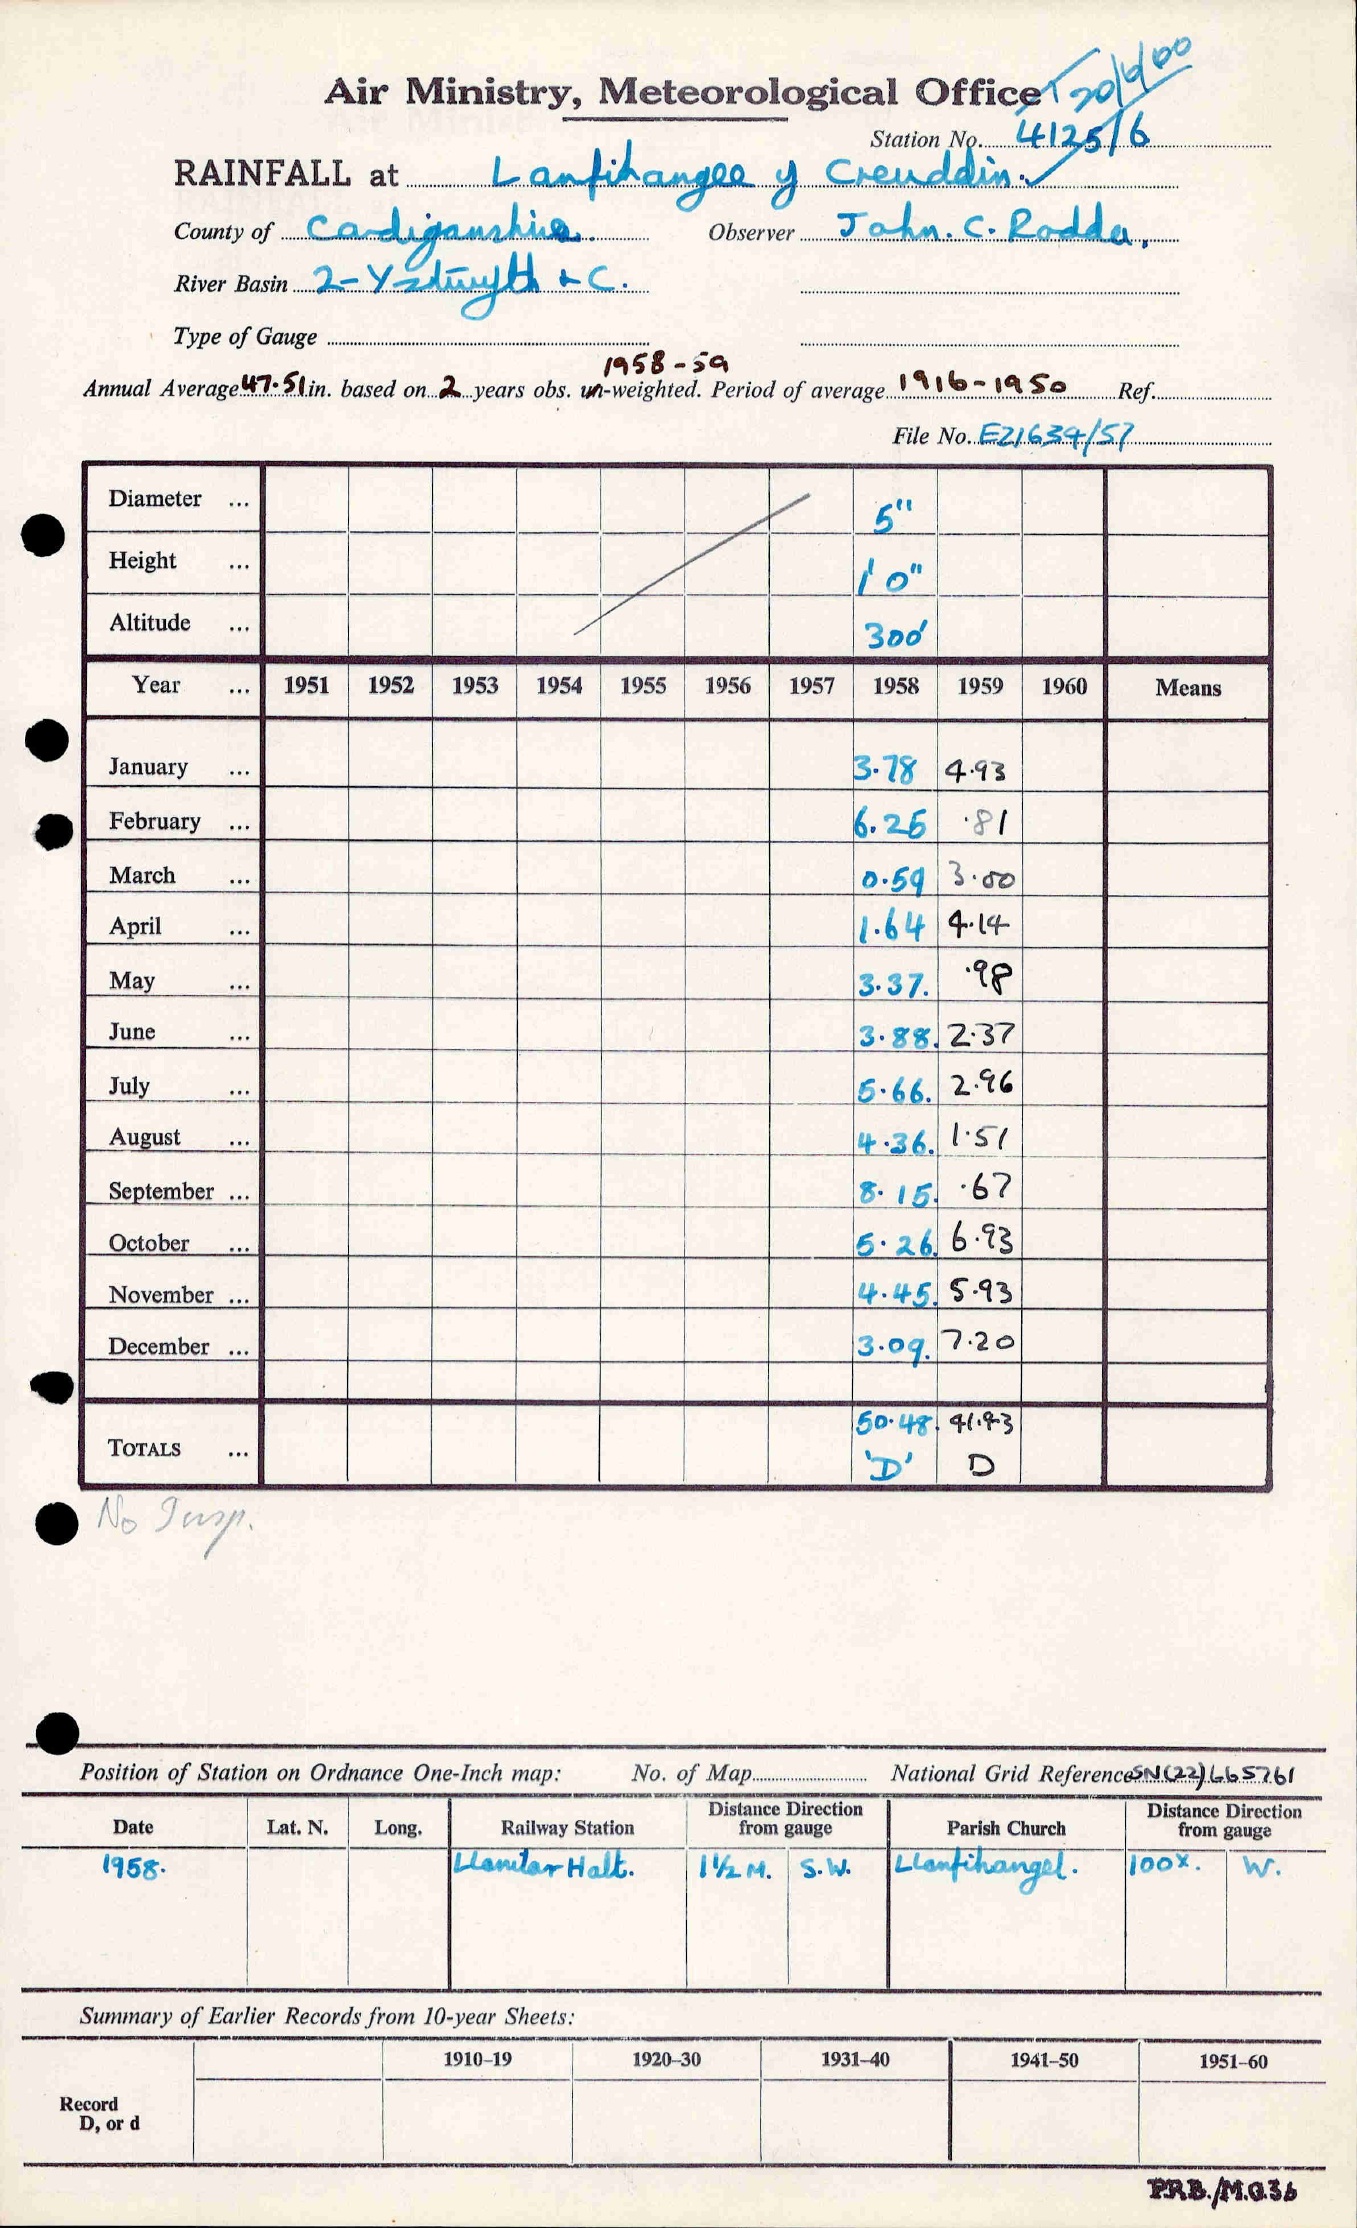 T 20/6/60
Air Ministry, Meteorological Office
Station No. 4125/6
RAINFALL at Lanfihangel y Creuddin. ✓
County of Cardiganshire. Observer John. C. Rodda.
River Basin 2-Ystwyth + C.
Type of Gauge
1958-59
Annual Average 47.51 in. based on 2 years obs. un-weighted. Period of average 1916-1950 Ref.
File No. EZ1634/57
Diameter ... 5"
Height ... 1' 0"
Altitude ... 300'
Year ... 1951 1952 1953 1954 1955 1956 1957 1958 1959 1960 Means
January ... 3.78 4.93
February ... 6.25 .81
March ... 0.59 3.50
April ... 1.64 4.14
May ... 3.37. .98
June ... 3.88. 2.37
July ... 5.66. 2.96
August ... 4.36. 1.51
September ... 8.15. .67
October ... 5.26. 6.93
November ... 4.45. 5.93
December ... 3.09. 7.20
50.48. 41.43
TOTALS ... 'D' D
No Insp.
Position of Station on Ordnance One-Inch map: No. of Map National Grid Reference SN(22)665761
Date Lat. N. Long. Railway Station Distance Direction from gauge Parish Church Distance Direction from gauge
1958. Llanilar Halt. 1½ M. S.W. Llanfihangel. 100x. W.
Summary of Earlier Records from 10-year Sheets:
1910-19 1920-30 1931-40 1941-50 1951-60
Record
D, or d
P.R.B./M.O.36